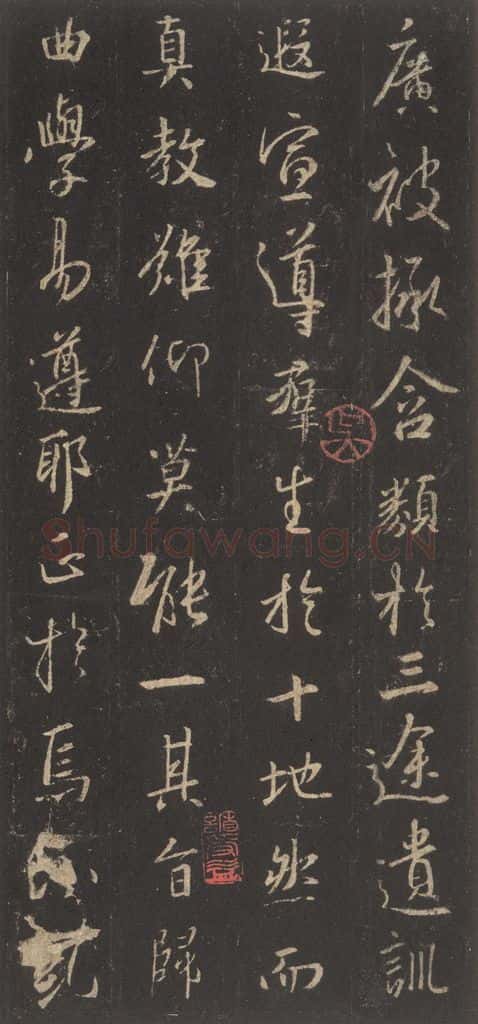 廣被拯含類於三途遺訓
遐宣導羣生於十地然而
真教難仰莫能一其旨歸
曲學易遵耶正於焉
Shufawang.CN